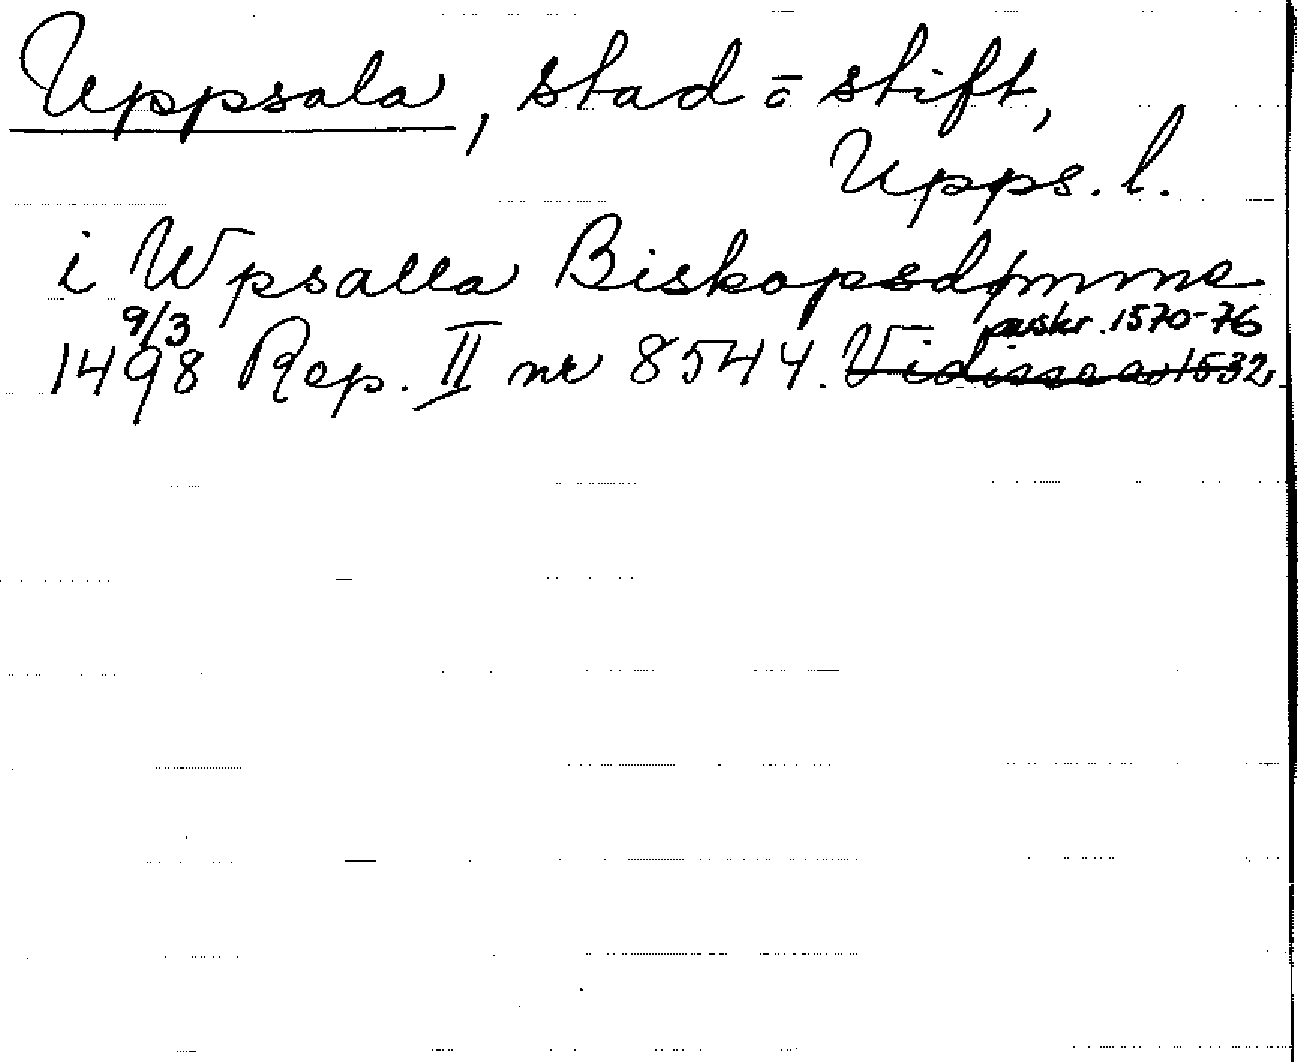 Uppsala, stad o stift,
Upps. l.
i Wpsalla Biskopsdømme
9/3 avskr. 1570-76
1498 Rep. II nr 8544. Vidisse av 1532,